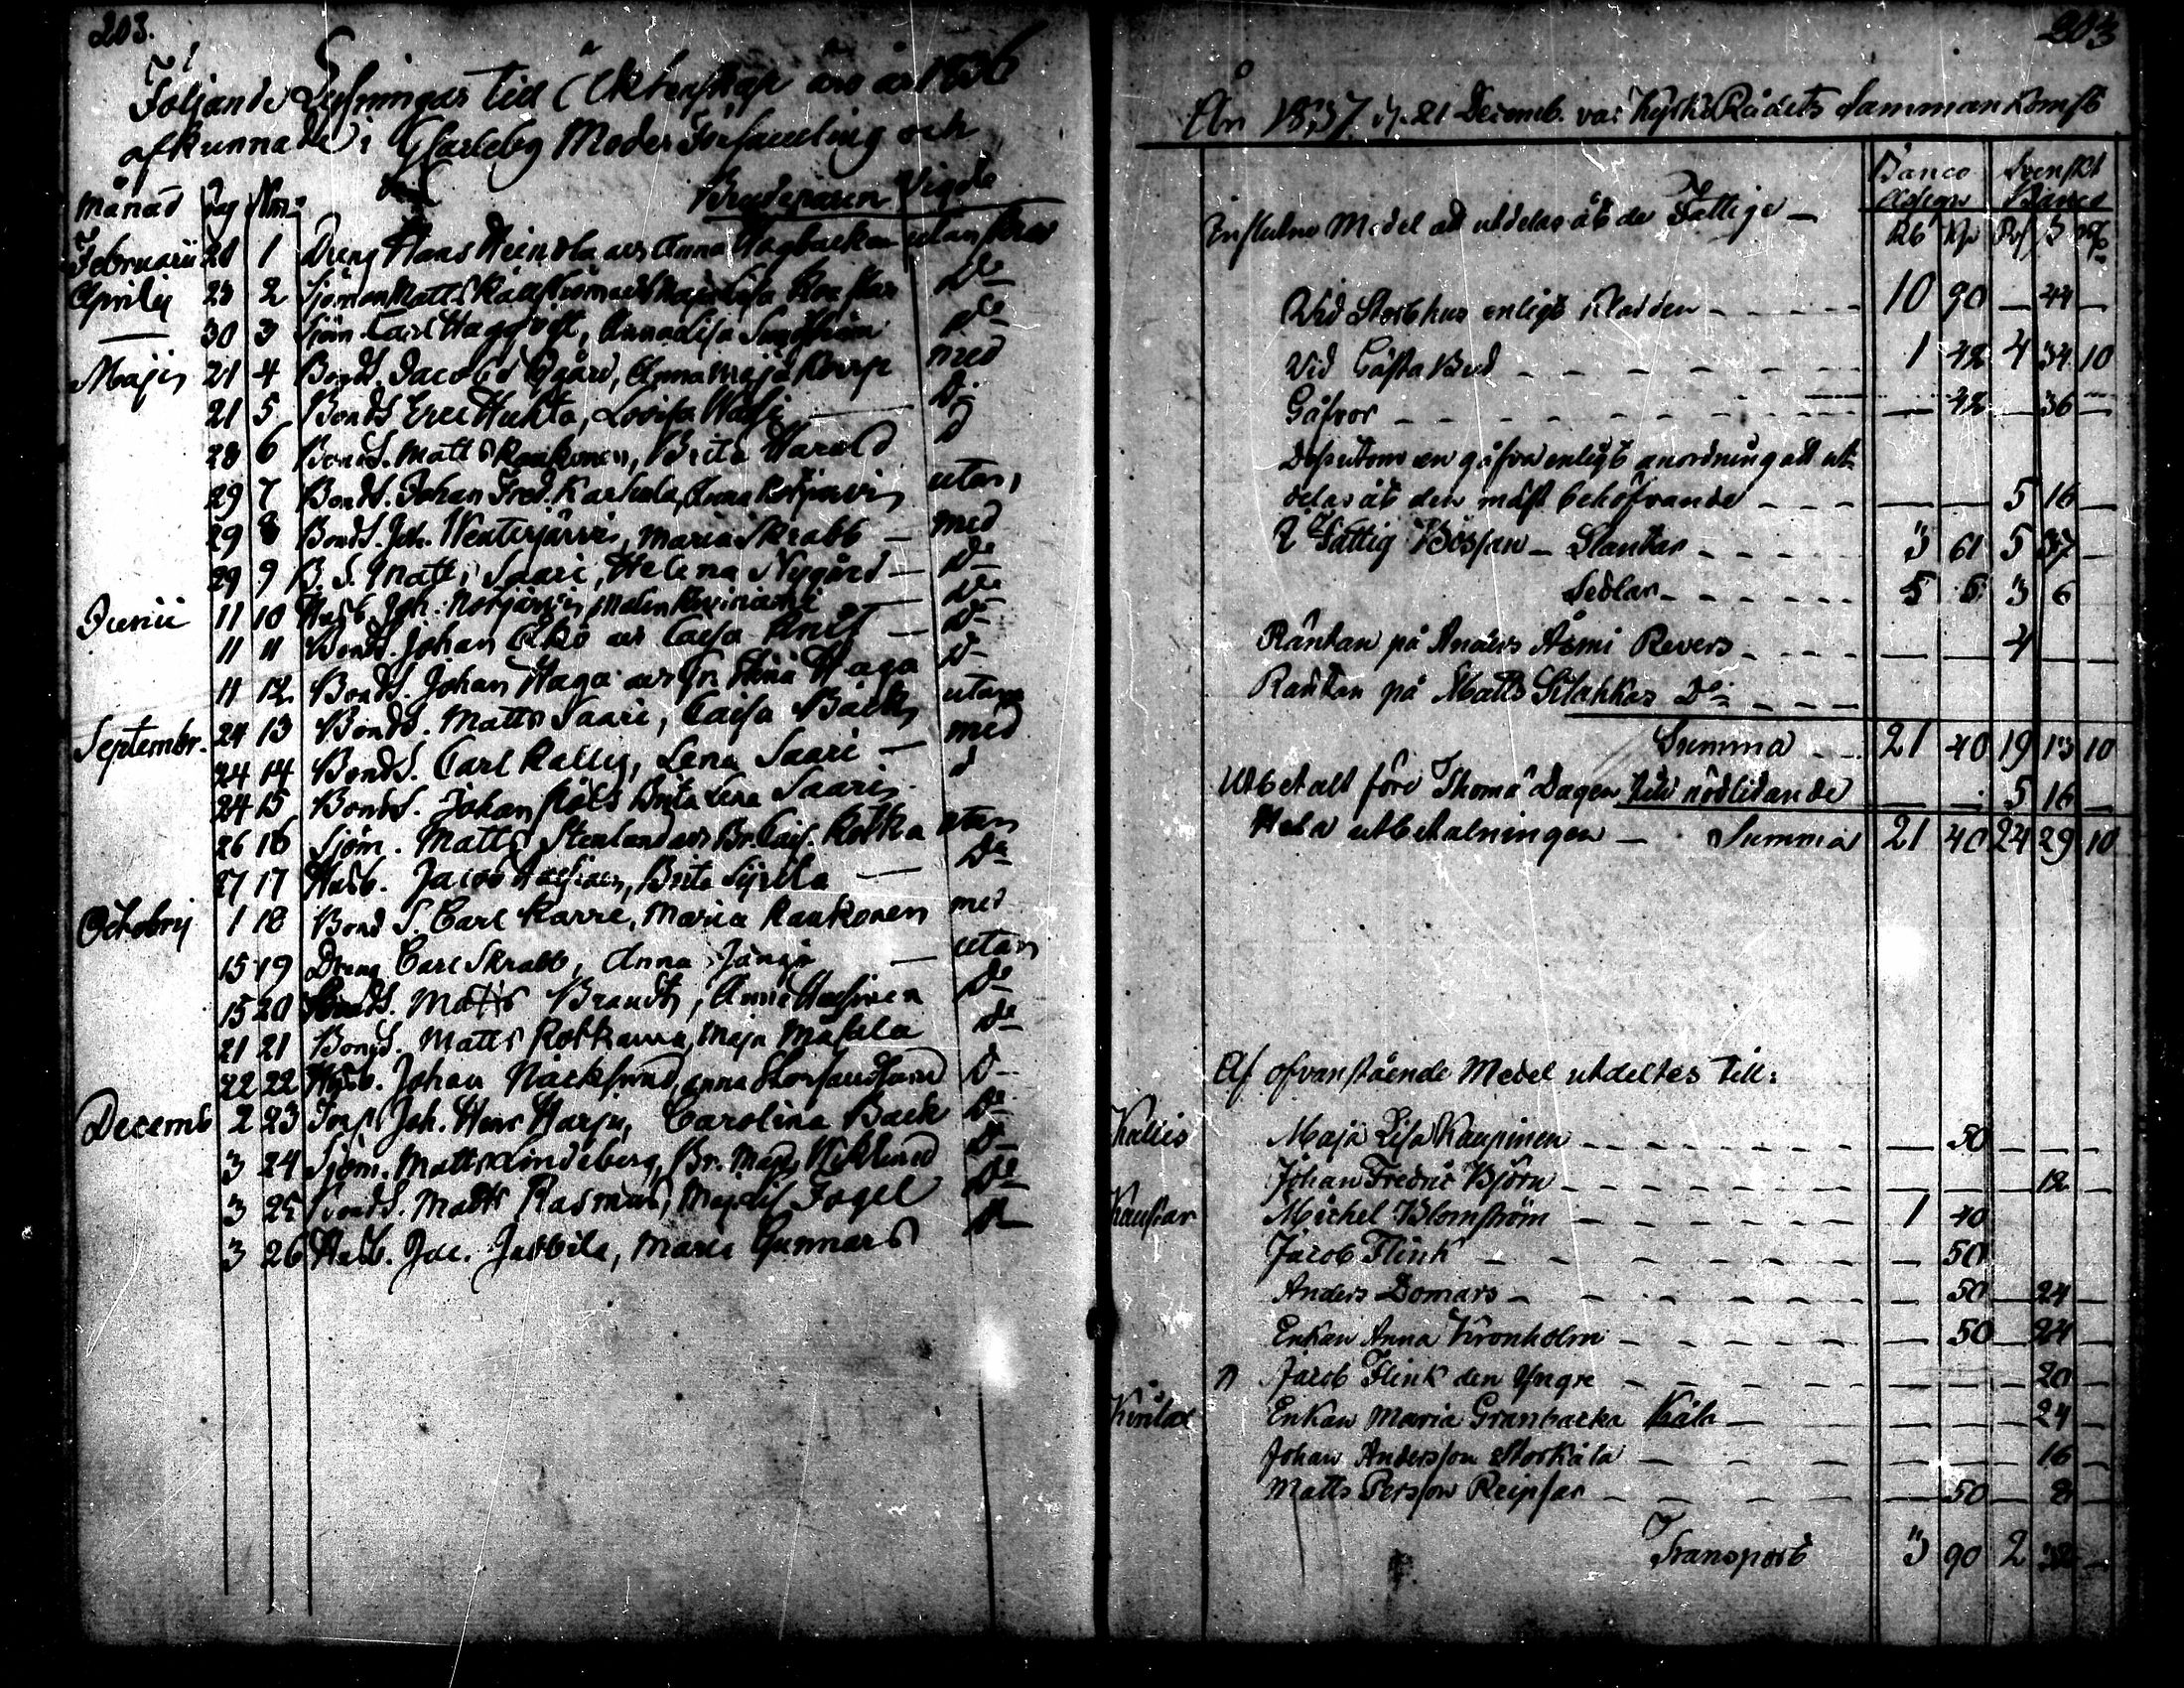 203.
Följande Lysningar till Äktenskap äro år 1836
afkunnade i Gkarleby Moder Församling och
Månad Dag Nro Brudparen Vigde
Februarii 28 1 Dreng Hans Heinola och Anna Hagbacka utan krut
Aprilis 23 2 Sjöman Matts och Maja Lisa Do
30 3 Sjöm. Carl Haggqvist, Anna Lisa Sundström Do
Maji 21 4 BondS. Jacob Gård, Anna Maja Korpi med
21 5 BondS. Eric Huhta, Lovisa Do
28 6 BondS. Matts Kaukonen, Brita Harald D
29 7 BondS. Johan Fred. Karhula, Anna utan
29 8 BondS. Joh. Wenterjärvi, Maria Skrabb — med
29 9 B. S. Matts Saari, Helena Nygård — Do
Junii 11 10 Husb. Joh. Norjärvi, Malin — Do
11 11 BondS. Johan och Caisa — Do
11 12 BondS. Johan Haga och Stina Haga D
Septembr. 24 13 BondS. Matts Saari, Caisa Back utan
24 14 BondS. Carl Rally, Lena Saari — med
24 15 BondS. Johan Brita Lena Saari d
26 16 Sjöm. Matts Stenlund och Br. Cajs. Kotka utan
27 17 Husb. Jacob Brita — Do
Octobrij 1 18 Bond S. Carl Karre, Maria Kaukonen med
15 19 Dreng Carl Skrabb, Anna — utan
15 20 BondS. Matts Brandt, Anna Do
21 21 BondS. Matts Kotkama, Maja Do
22 22 Husb. Johan Näcksund, Anna D
Decemb 2 23 Joh. Henr Harju, Carolina Back Do
3 24 Sjöm. Matts Lindeberg, Br. Maja Wiklund D
3 25 BondS. Matts Rasmus, Fogel Do
3 26 Husb. Jac. Maria Gunnars D
203
År 1837 d. 21 Decemb. var Kyrko Rådets Sammankomst
Banco Svenskt
Assign Banco
Influtne Medel att utdelas åt de Fattige — Rb Kp Rd ß
Vid Storbhus enligt Kladden 10 90 — 44 —
Vid Gästabud 1 42 4 34 10
Gåfvor — 42 — 36 —
Dessutom en gåfva enligt anordning att ut-
delas åt den mäst behöfvande — — 5 16 —
I Fattig Bössan — Slantar 3 61 5 37 —
Sedlar 5 5 3 6
Räntan på Anders Åsmi Revers — — 4
Räntan på Matts Silahkas Do
Summa 21 40 19 13 10
Utbetalt före Thomæ Dagen till nödlidande — — 5 16 —
Hela utbetalningen — Summa 21 40 24 29 10
Af ofvanstående Medel utdeltes till:
Kallis Maja Lisa Kaupinen — 50 — — —
Johan Fredric Björn — — — 12 —
Kaustar Michel Blomström 1 40
Jacob Flink — 50
Anders Domars — 50 — 24 —
Enkan Anna Kronholm — 50 — 24 —
Jacob Flink den Yngre — — — 20 —
Kviklax Enkan Maria Granbacka Kåla — — — 24 —
Johan Andersson Storkåla — — — 16 —
Matts Persson Reipsar — 50 — 8 —
Transport 3 90 2 32 —